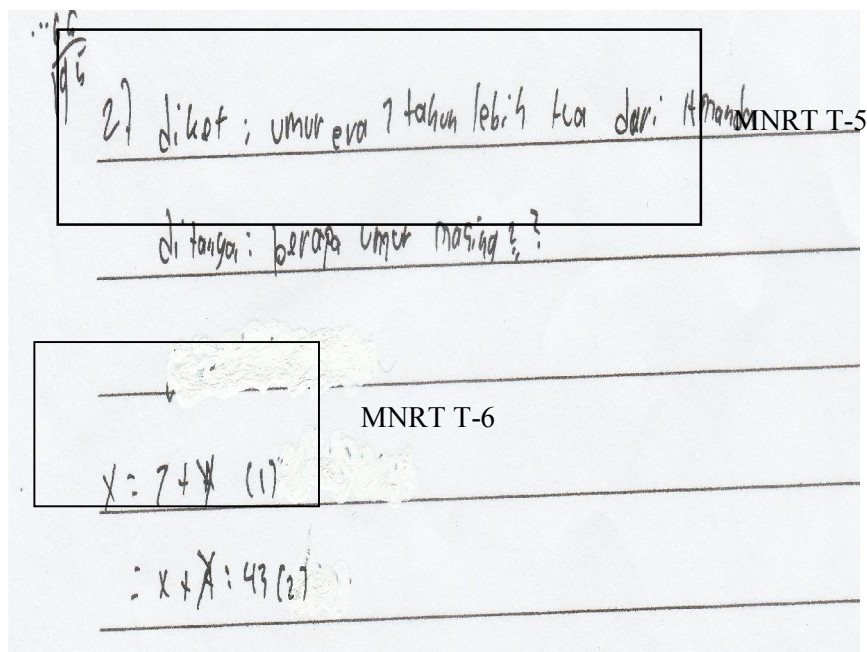 2) diket : umur eva 7 tahun lebih tua dari Amanda
MNRT T-5
ditanya : berapa umur masing2 ?
MNRT T-6
x = 7 + y (1)
= x + y = 43 (2)